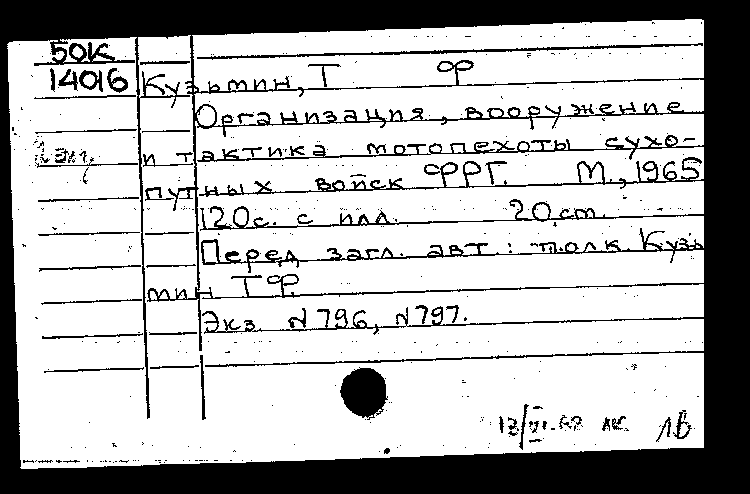 50К
14016 Кузьмин, Т Ф
Организация, вооружение
и тактика мотопехоты сухо-
путных войск ФРГ. М., 1965
120с. с илл. 20 cm.
Перед загл. авт: полк Кузь
мин Т Ф.
Экз N 796, N 797.
13/VI-
ЛВ